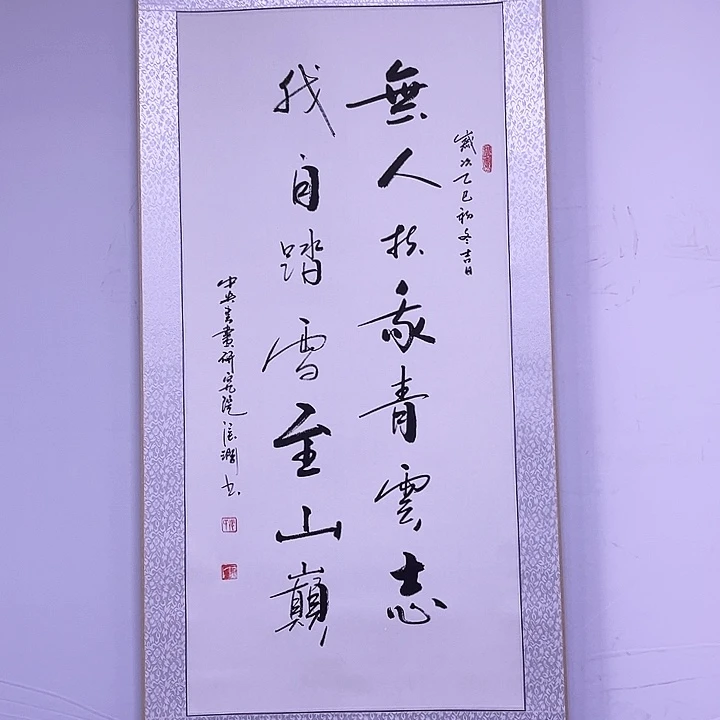 歲次乙巳初冬吉日
無人扶我青雲志
我自踏雪至山巔
中央書畫研究院 书